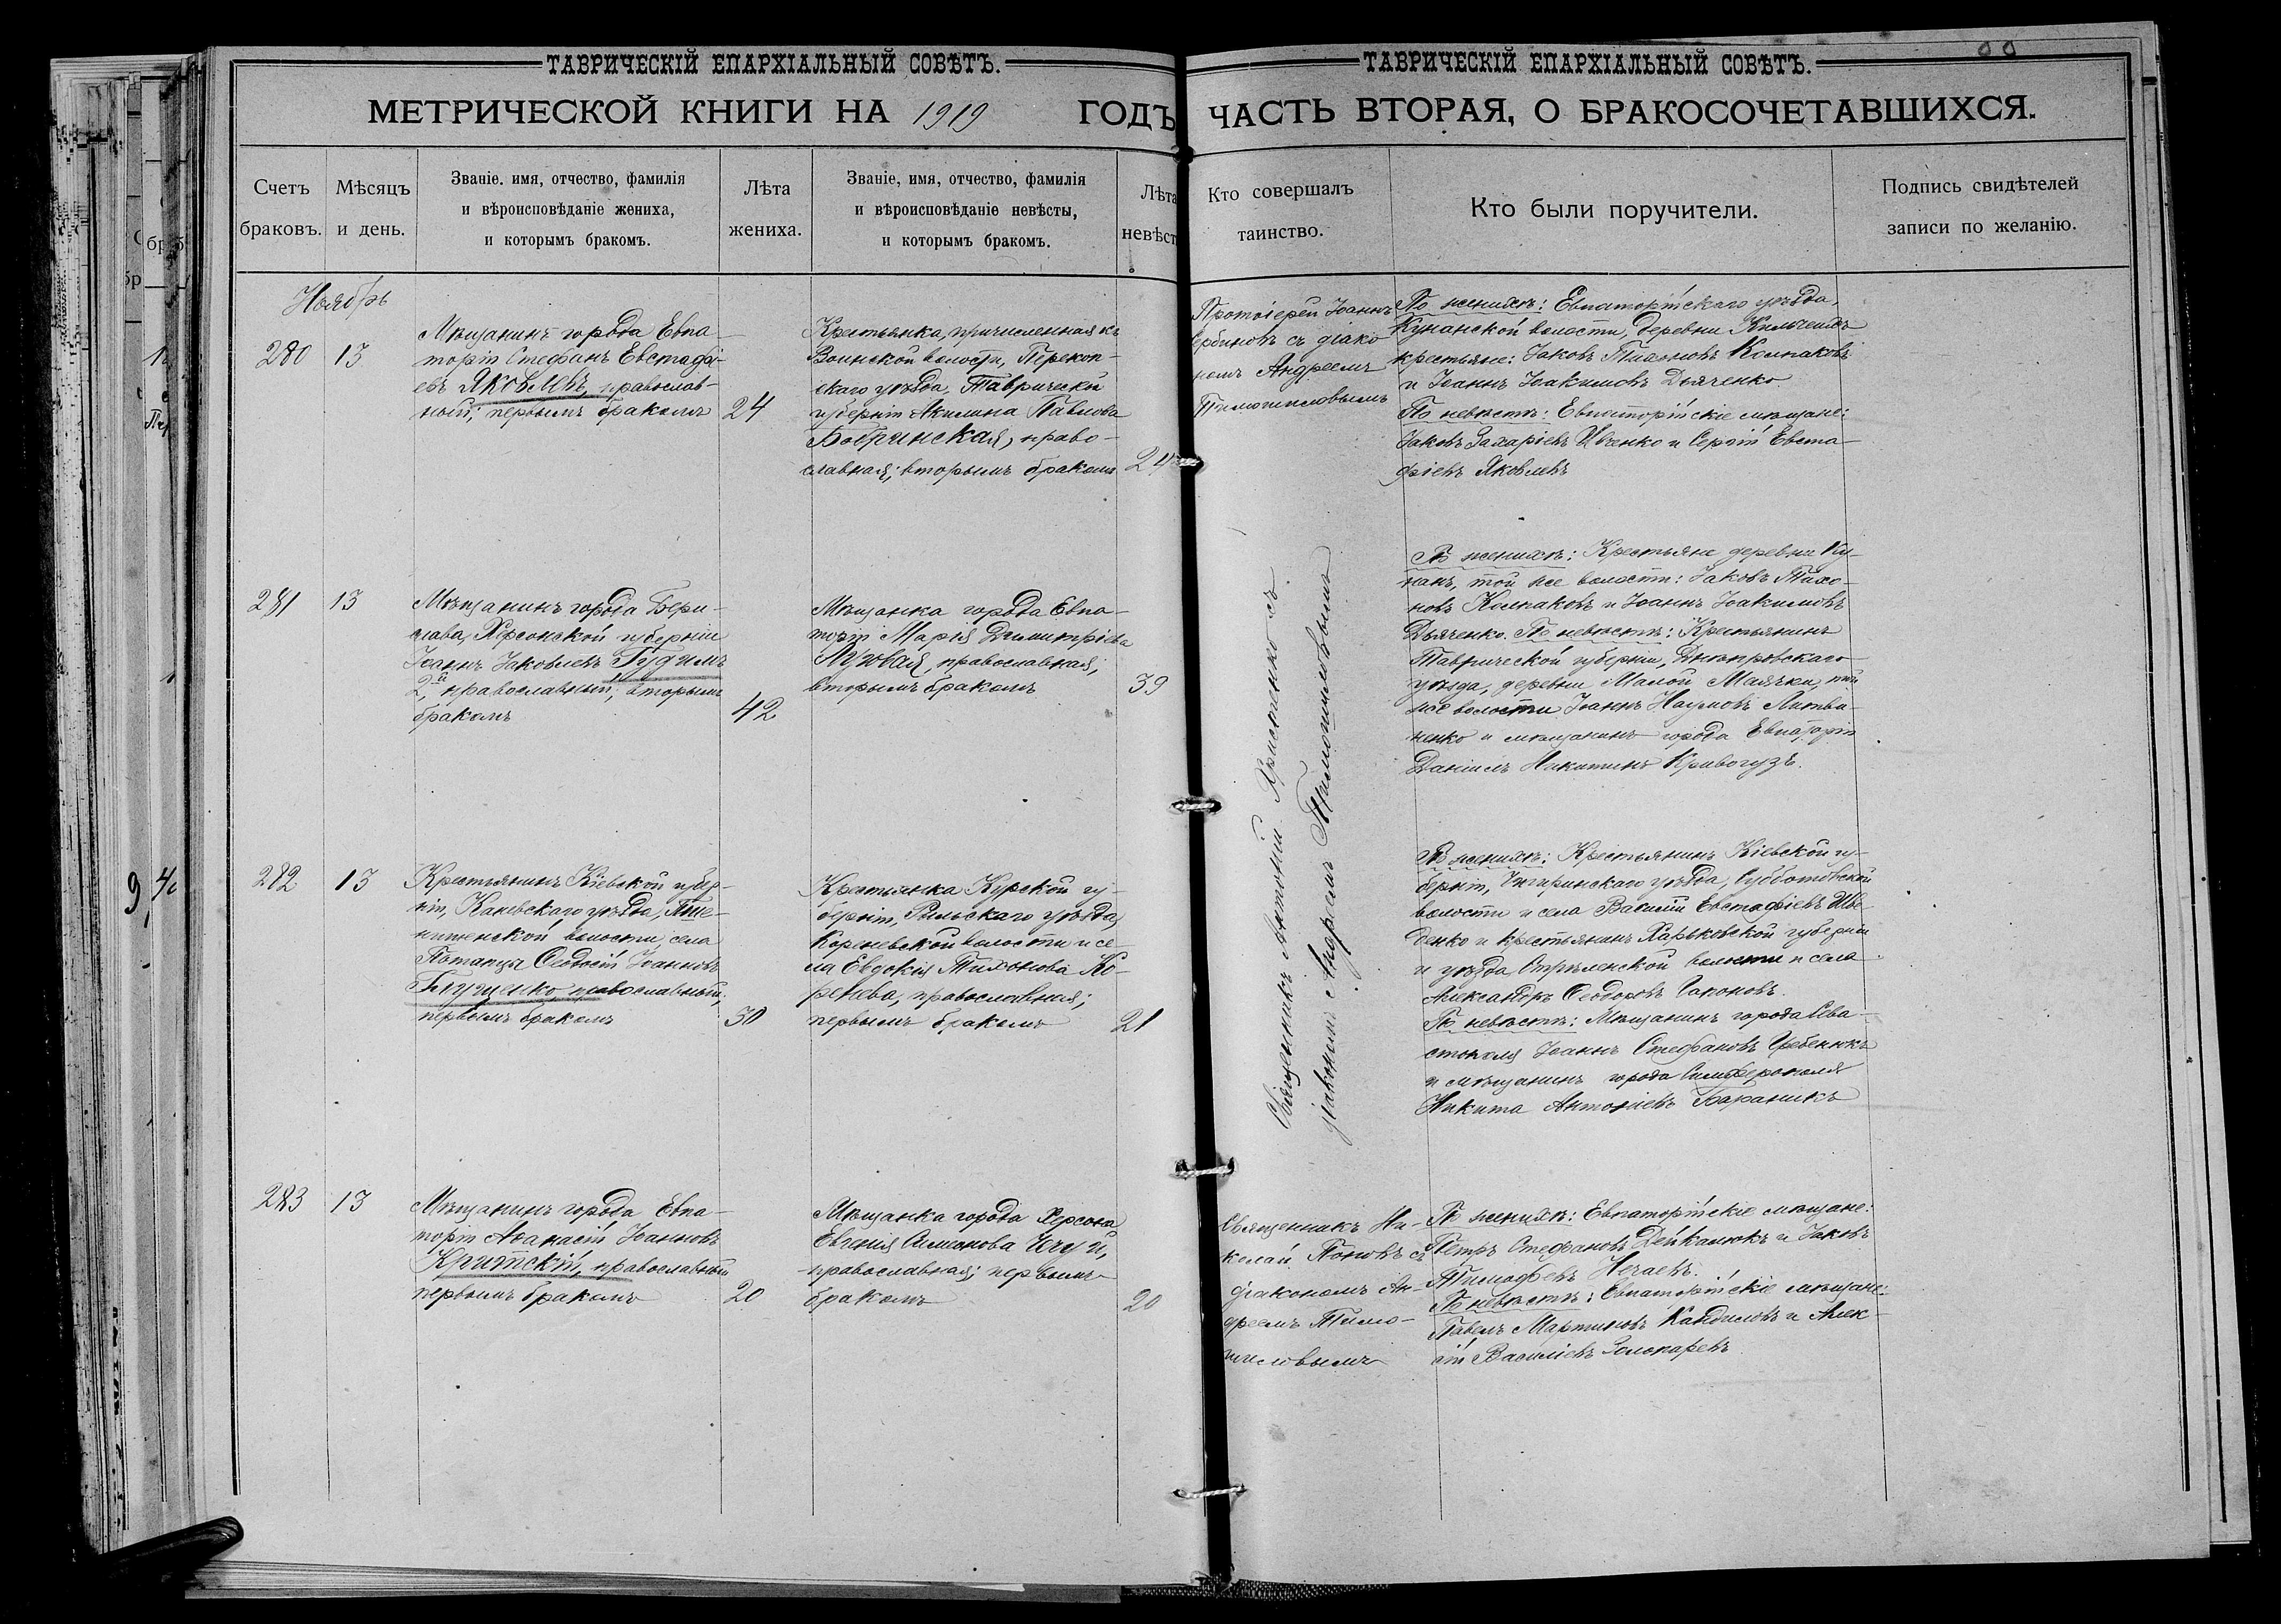 ТАВРИЧЕСКІЙ ЕПАРХІАЛЬНЫЙ СОВѢТЪ.
МЕТРИЧЕСКОЙ КНИГИ НА 1919 ГОДЪ
Счетъ браковъ.
Мѣсяцъ и день.
Званіе. имя, отчество, фамилія
и вѣроисповѣданіе жениха,
и которымъ бракомъ.
Лѣта жениха.
Званіе, имя, отчество, фамилія
и вѣроисповѣданіе невѣсты,
и которымъ бракомъ.
Лѣта
невѣст
ТАВРИЧЕСКІЙ ЕПАРХІАЛЬНЫЙ СОВѢТЪ.
ЧАСТЬ ВТОРАЯ, О БРАКОСОЧЕТАВШИХСЯ.
Кто совершалъ
таинство.
Кто были поручители.
Подпись свидѣтелей
записи по желанію.
Ноябрь
280
13
Мѣщанинъ города Евпа-
торіи Стефанъ Евстафі-
евъ Яковлевъ, православ-
ный; первымъ бракомъ
24
Крестьянка, причисленная къ
Воинской волости, Перекоп-
скаго уѣзда, Таврической
губерніи Акилина Павлова
Бобринская, право-
славная; вторымъ бракомъ
24
Протоіерей Іоаннъ
съ діако-
номъ Андреемъ
По женихѣ: Евпаторійскаго уѣзда,
Кунанской волости, деревни
крестьяне: Іаковъ Тихоновъ Колпаковъ
и Іоаннъ Іоакимовъ Дьяченко
По невѣстѣ: Евпаторійскіе мѣщане:
Іаковъ Захаріевъ Ивченко и Сергій Евста-
фіевъ Яковлевъ
281
13
Мѣщанинъ города Бери-
слава, Херсонской губерніи
Іоаннъ Іаковлевъ Гудимъ
2й, православный; вторымъ
бракомъ
42
Мѣщанка города Евпа-
торіи Марія Димитріева
Лузовая, православная;
вторымъ бракомъ
39
Священникъ Антоній Христенко съ
діакономъ Андреемъ
По женихѣ: Крестьяне деревни Ку-
нанъ, той же волости: Іаковъ Тихо-
новъ Колпаковъ и Іоаннъ Іоакимовъ
Дьяченко. По невѣстѣ: Крестьянинъ
Таврической губерніи, Днѣпровскаго
уѣзда, деревни Малой Маячки, той
же волости Іоаннъ Наумовъ Литви-
ненко и мѣщанинъ города Евпаторіи
Даніилъ Никитинъ Кривогузъ.
282
13
Крестьянинъ Кіевской губер-
ніи, Каневскаго уѣзда, Пше-
ничненской волости, села
Потапцы Ѳеодосій Іоанновъ
Глущенко, православный;
первымъ бракомъ
30
Крестьянка Курской гу-
берніи, Рыльскаго уѣзда,
Кореневской волости и се-
ла Евдокія Тихонова Ко-
ренева, православная;
первымъ бракомъ
21
По женихѣ: Крестьянинъ Кіевской гу-
берніи, Чигиринскаго уѣзда, Субботовской
волости и села Василій Евстафіевъ Шве-
денко и крестьянинъ Харьковской губерніи
и уѣзда, Стрѣленской волости и села
Александръ Ѳеодоровъ Сапоновъ.
По невѣстѣ: Мѣщанинъ города Сева-
стополя Іоаннъ Стефановъ Гребенюкъ
и мѣщанинъ города Симферополя
Никита Антоніевъ Бараникъ
283
13
Мѣщанинъ города Евпа-
торіи Аѳанасій Іоанновъ
Критскій, православный
первымъ бракомъ
20
Мѣщанка города Херсона
Евгенія Симонова
православная; первымъ
бракомъ
20
Священникъ Ни-
колай Поповъ съ
діакономъ Ан-
дреемъ
По женихѣ: Евпаторійскіе мѣщане:
Петръ Стефановъ Дейкалюкъ и Іаковъ
Тимофеевъ Нечаевъ.
По невѣстѣ: Евпаторійскіе мѣщане:
Павелъ Мартиновъ Кандиловъ и Алек-
сій Василіевъ